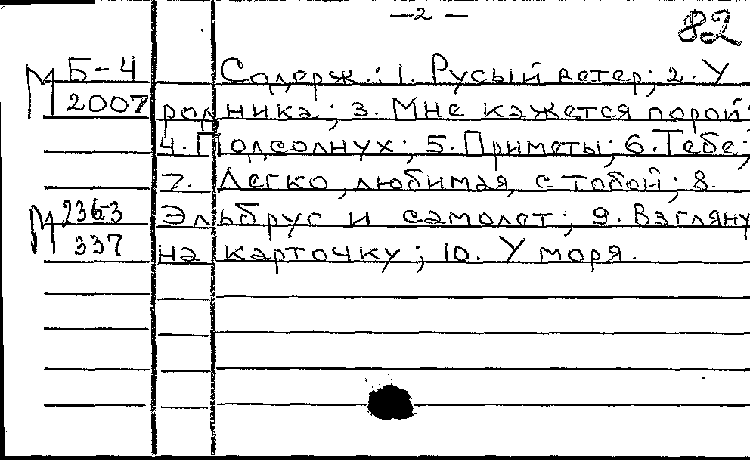 —2—
82
Б-4
Содерж.: 1. Русый ветер; 2. У
М 2007
родника; 3. Мне кажется порой;
4. Подсолнух; 5. Приметы; 6. Тебе;
7. Легко, любимая, с тобой; 8.
М 2363
Эльбрус и самолет; 9. Взгляну
337
на карточку; 10. У моря.